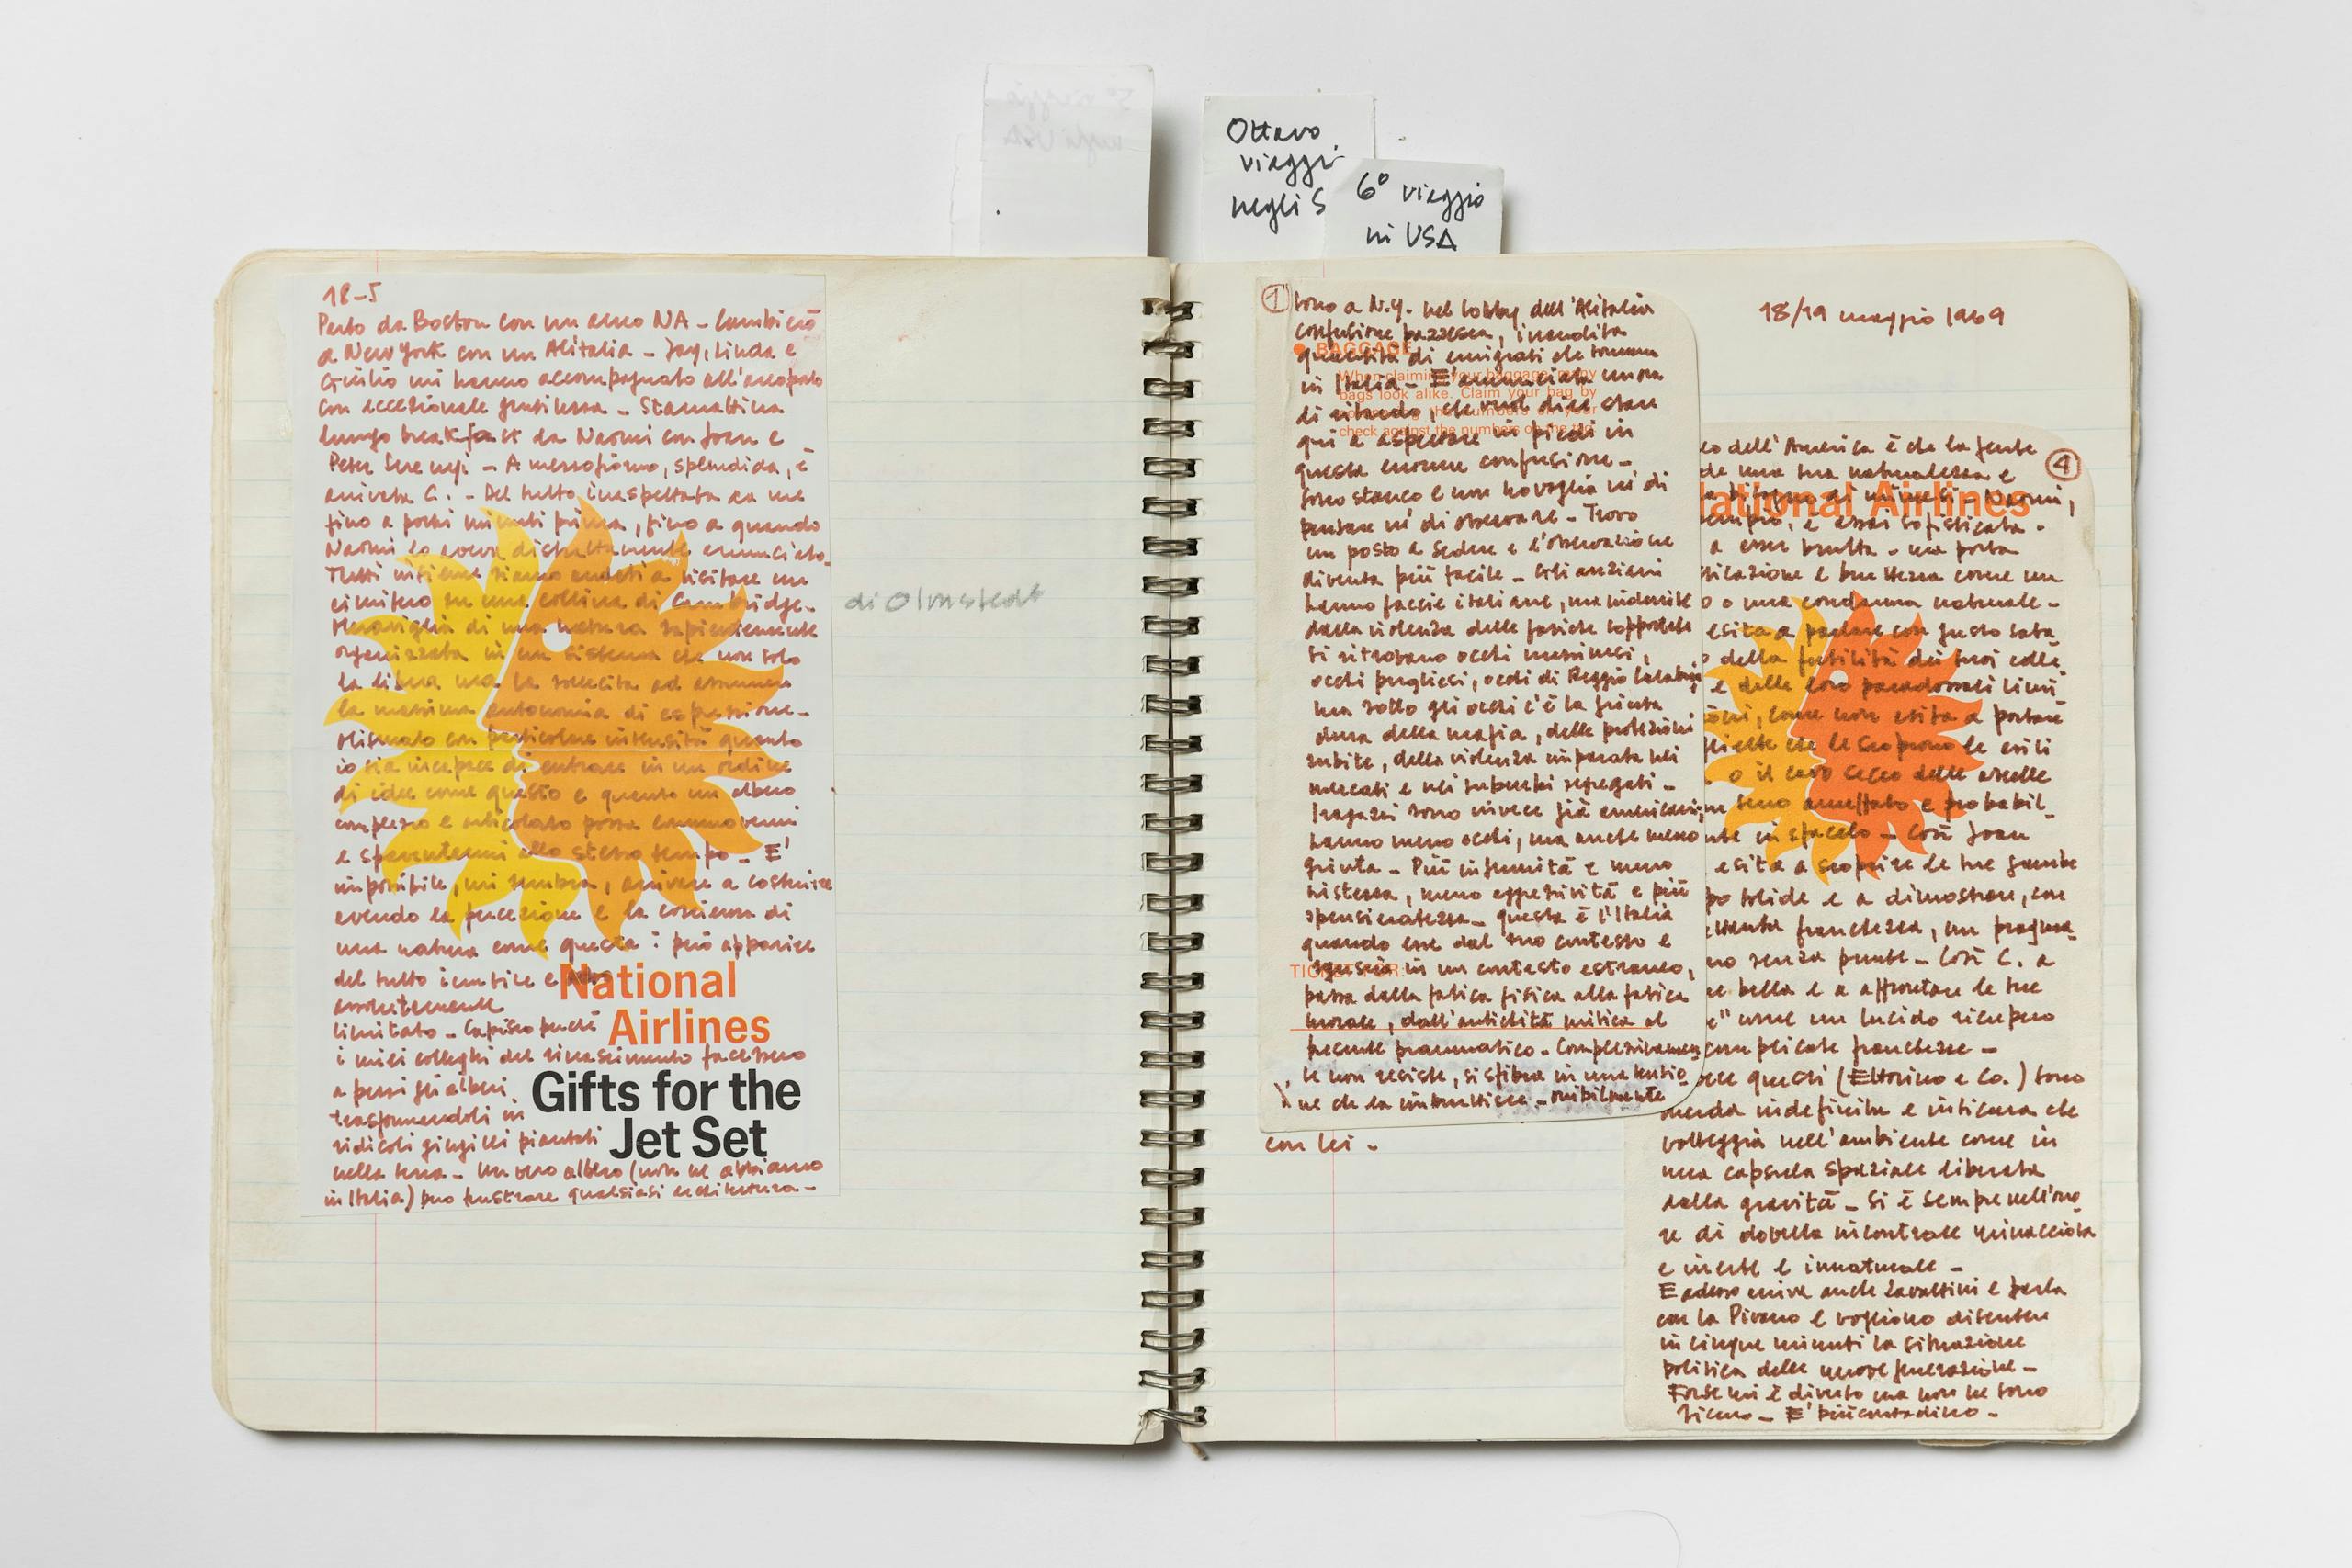 Ottavo
viaggi
negli S
6º viaggio
in USA
18-5
Parto da Boston con un aereo NA - Cambierò
a New York con un Alitalia - Jay, Linda e
Giulio mi hanno accompagnato all'aeroporto
con eccezionale gentilezza - Stamattina
lungo breakfast da Naomi con Joan e
Peter - A mezzogiorno, splendida, è
arrivata C. - Del tutto inaspettata da me
fino a pochi minuti prima, fino a quando
Naomi lo aveva distrattamente annunciato.
Tutti insieme siamo andati a visitare un
cimitero su una collina di Cambridge -
di Olmstedt
Meraviglia di una natura sapientemente
organizzata in un sistema che non solo
la libera ma la sollecita ad assumere
la massima autonomia di espressione -
Misurato con particolare intensità quanto
io sia incapace di entrare in un ordine
di idee come questo e quanto un albero
complesso e articolato possa commuovermi
e spaventarmi allo stesso tempo - E'
impossibile, mi sembra, arrivare a costruire
avendo la percezione e la coscienza di
una natura come questa : può apparire
del tutto inutile e
assolutamente
limitato - Capisco perché
i miei colleghi del rinascimento facessero
a pezzi gli alberi
trasformandoli in
ridicoli gingilli piantati
nella terra - Un vero albero (non ne abbiamo
in Italia) può frustrare qualsiasi architettura -
National
Airlines
Gifts for the
Jet Set
18/19 maggio 1969
1
Sono a N.Y. nel lobby dell'Alitalia
confusione pazzesca, inaudita
quantità di emigrati che tornano
in Italia - E' annunciata un'ora
di ritardo, che vuol dire stare
qui a aspettare in piedi in
questa enorme confusione -
Sono stanco e non ho voglia né di
pensare né di osservare - Trovo
un posto a sedere e l'osservazione
diventa più facile - Gli anziani
hanno faccie italiane, ma indurite
dalla violenza delle fatiche sopportate
Si ritrovano occhi messinesi,
occhi pugliesi, occhi di Reggio Calabria,
ma sotto gli occhi c'è la grinta
dura della mafia, delle protezioni
subite, della violenza imparata nei
mercati e nei suburbi segregati -
I ragazzi sono invece già americani:
hanno meno occhi, ma anche meno
grinta - Più ingenuità e meno
tristezza, meno aggressività e più
spensieratezza - questa è l'Italia
quando esce dal suo contesto e
in un contesto estraneo,
passa dalla fatica fisica alla fatica
morale, dall'antichità mitica al
presente prammatico - Complessivamen
te non resiste, si sfibra in una tensio
ne che la imbruttisce - 
con lei -
BAGGAGE
When claiming your baggage, many
bags look alike. Claim your bag by
the numbers on your
check against the numbers on the tag.
4
dell'America è che la gente
de una sua naturalezza e
bisogno di mimesi - Naomi,
empio, è assai sofisticata -
a esser brutta - ma porta
bruttezza come un
o una condanna naturale -
esita a parlare con gusto
della futilità dei suoi colle
e delle loro paradossali
come non esita a portare
che le scoprono le esili
o il cavo secco delle ascelle
seno e probabil
in sfacelo - Così Joan
esita a scoprire le sue gambe
po solide e a dimostrare, con
franchezza, un pragma
no senza punte - Così C. a
re bella e a affrontare le sue
" come un lucido recupero
complicate franchezze -
questi (Ettorino e Co.) sono
indefinita e insicura che
volteggia nell'ambiente come in
una capsula spaziale liberata
dalla gravità - Si è sempre nell'orro
re di doverla incontrare minacciosa
e inerte e innaturale -
E adesso arriva anche Zavattini e parla
con la Pivano e vogliono discutere
in cinque minuti la situazione
politica delle nuove generazioni -
Forse mi è divento ma non ne sono
sicuro - E' più contadino -
National Airlines